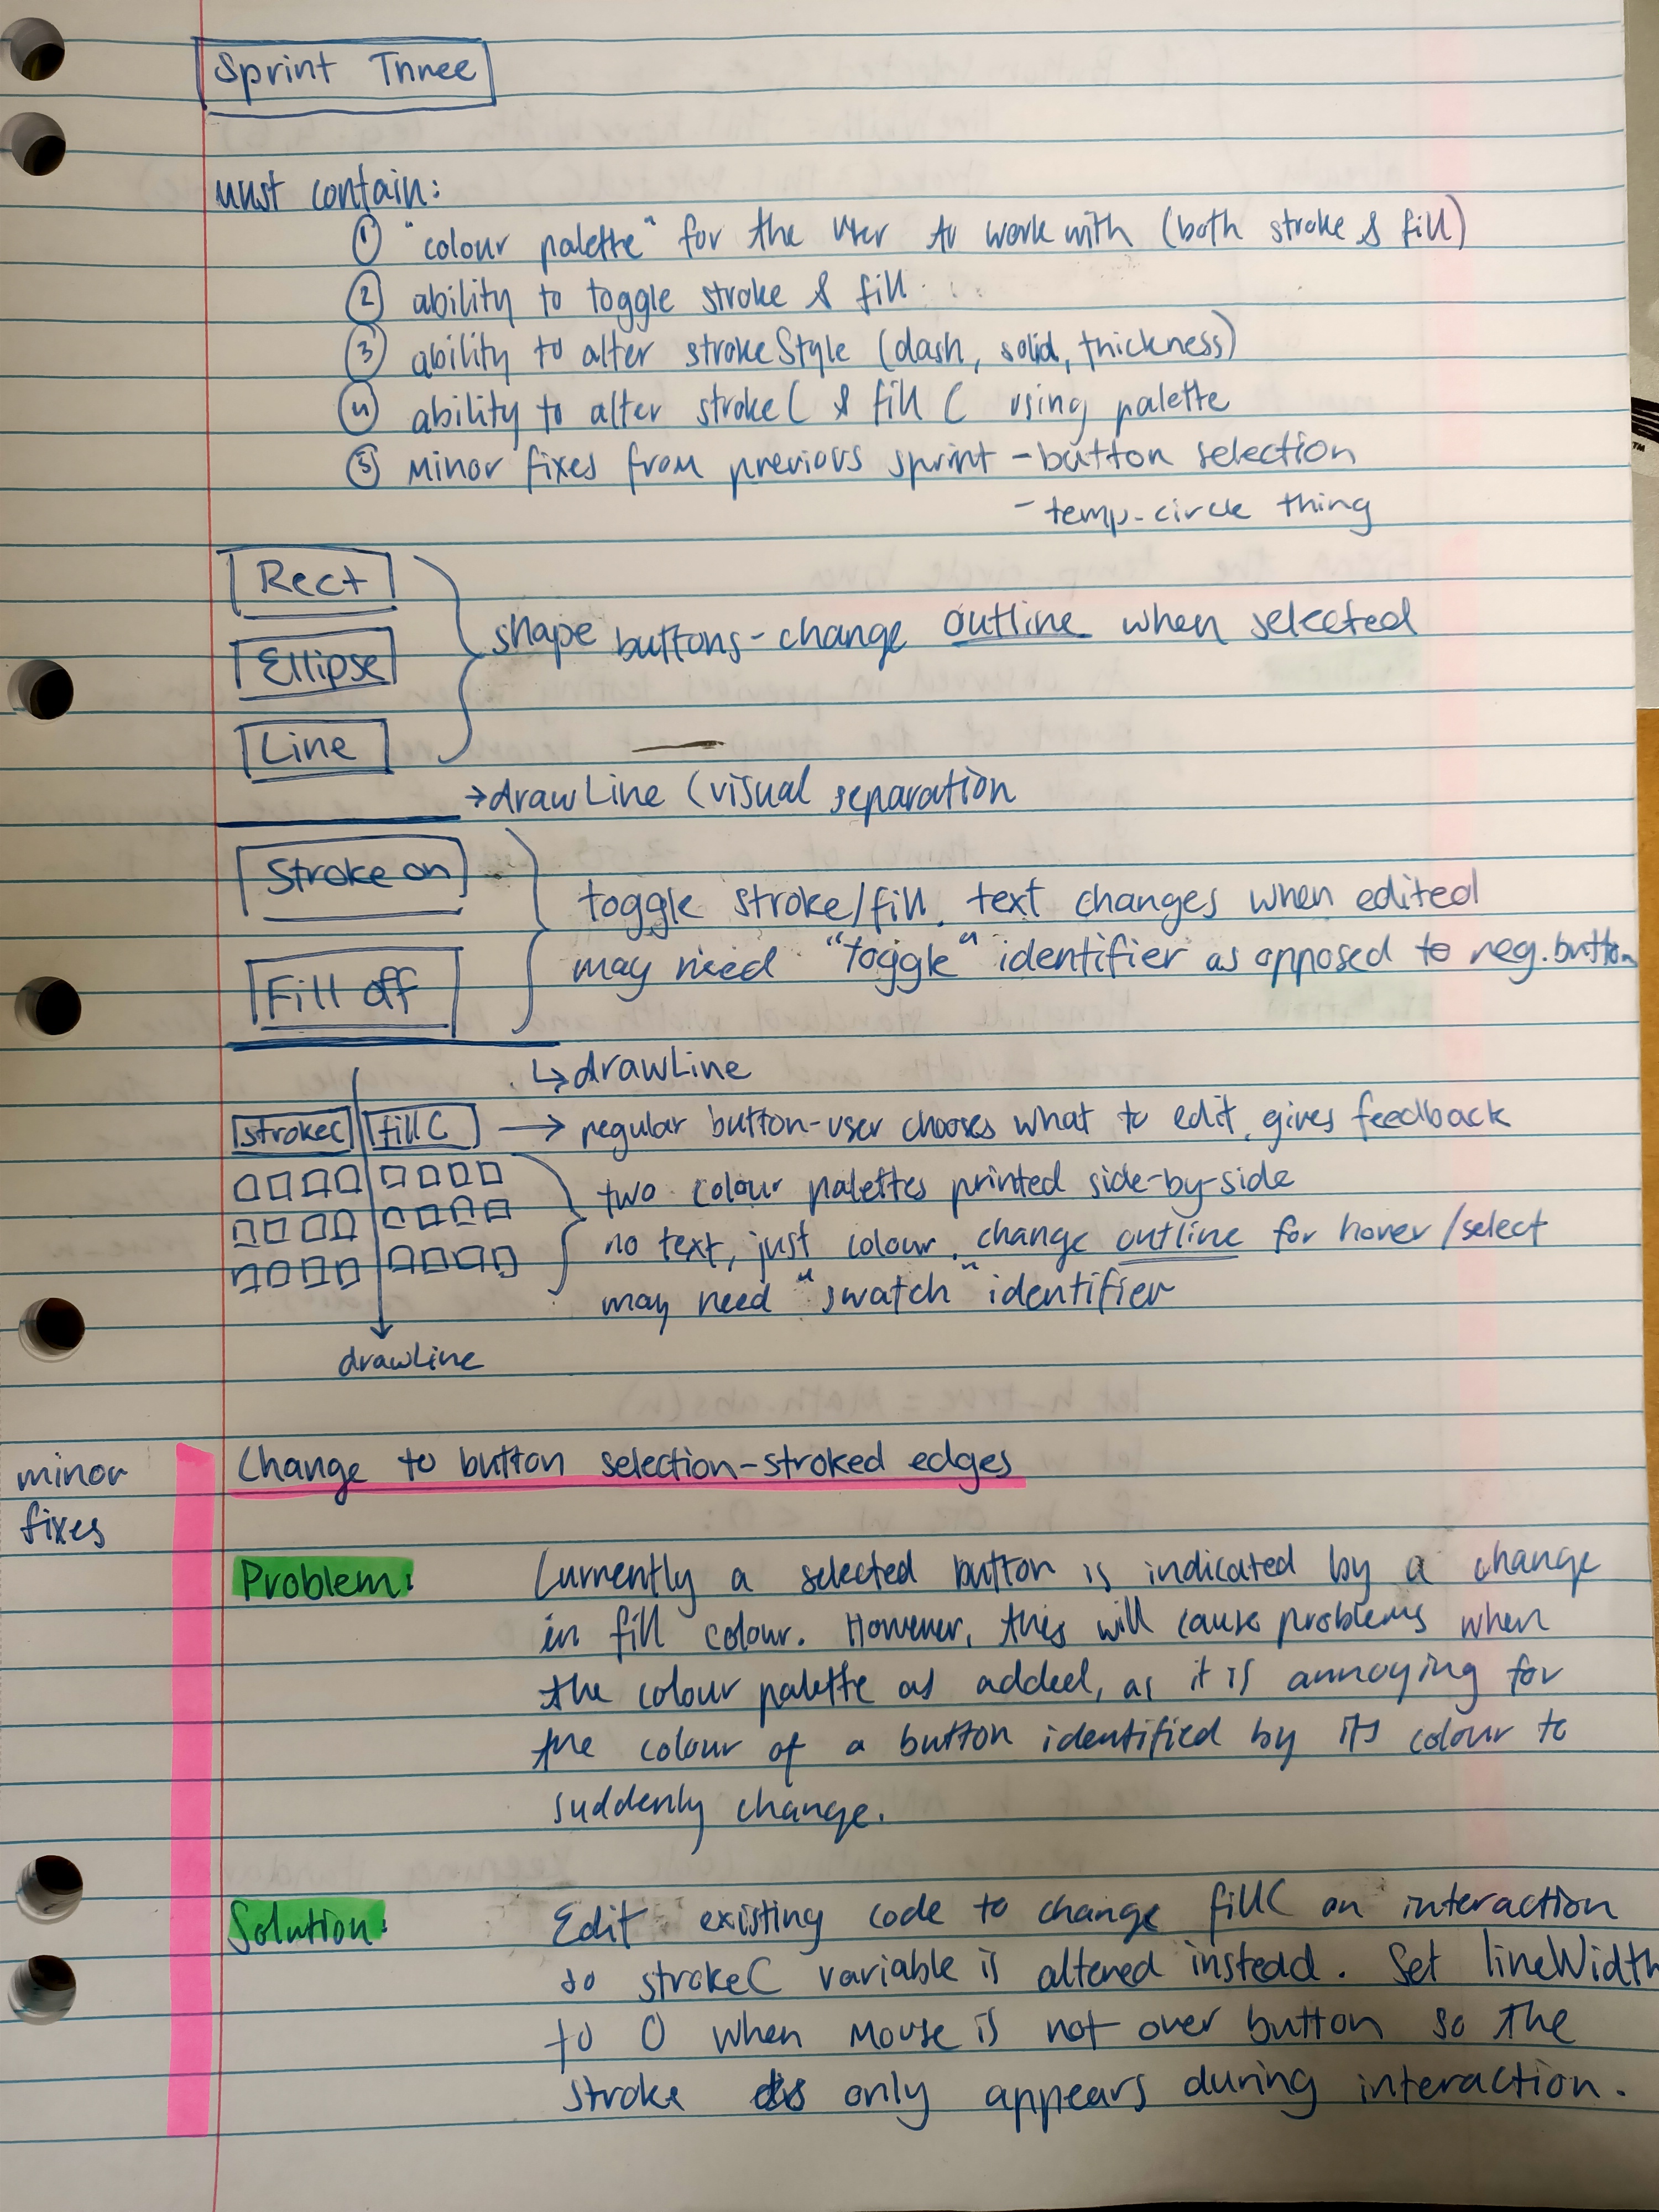 Sprint Three
must contain:
① "colour palette" for the user to work with (both stroke & fill)
② ability to toggle stroke & fill
③ ability to alter strokeStyle (dash, solid, thickness)
④ ability to alter strokeC & fillC using palette
⑤ minor fixes from previous sprint - button selection
- temp-circle thing
Rect
Ellipse
Line
shape buttons - change outline when selected
→ drawLine (visual separation
Stroke on
Fill off
toggle stroke/fill, text changes when edited
may need "toggle" identifier as opposed to reg. button
↳ drawLine
strokeC fillC → regular button - user chooses what to edit, gives feedback
two colour palettes printed side-by-side
no text, just colour, change outline for hover/select
may need "swatch" identifier
drawLine
minor
fixes
Change to button selection - stroked edges
Problem: Currently a selected button is indicated by a change
in fill colour. However, this will cause problems when
the colour palette as added, as it is annoying for
the colour of a button identified by its colour to
suddenly change.
Solution: Edit existing code to change fillC on interaction
so strokeC variable is altered instead. Set lineWidth
to 0 when mouse is not over button so the
stroke only appears during interaction.